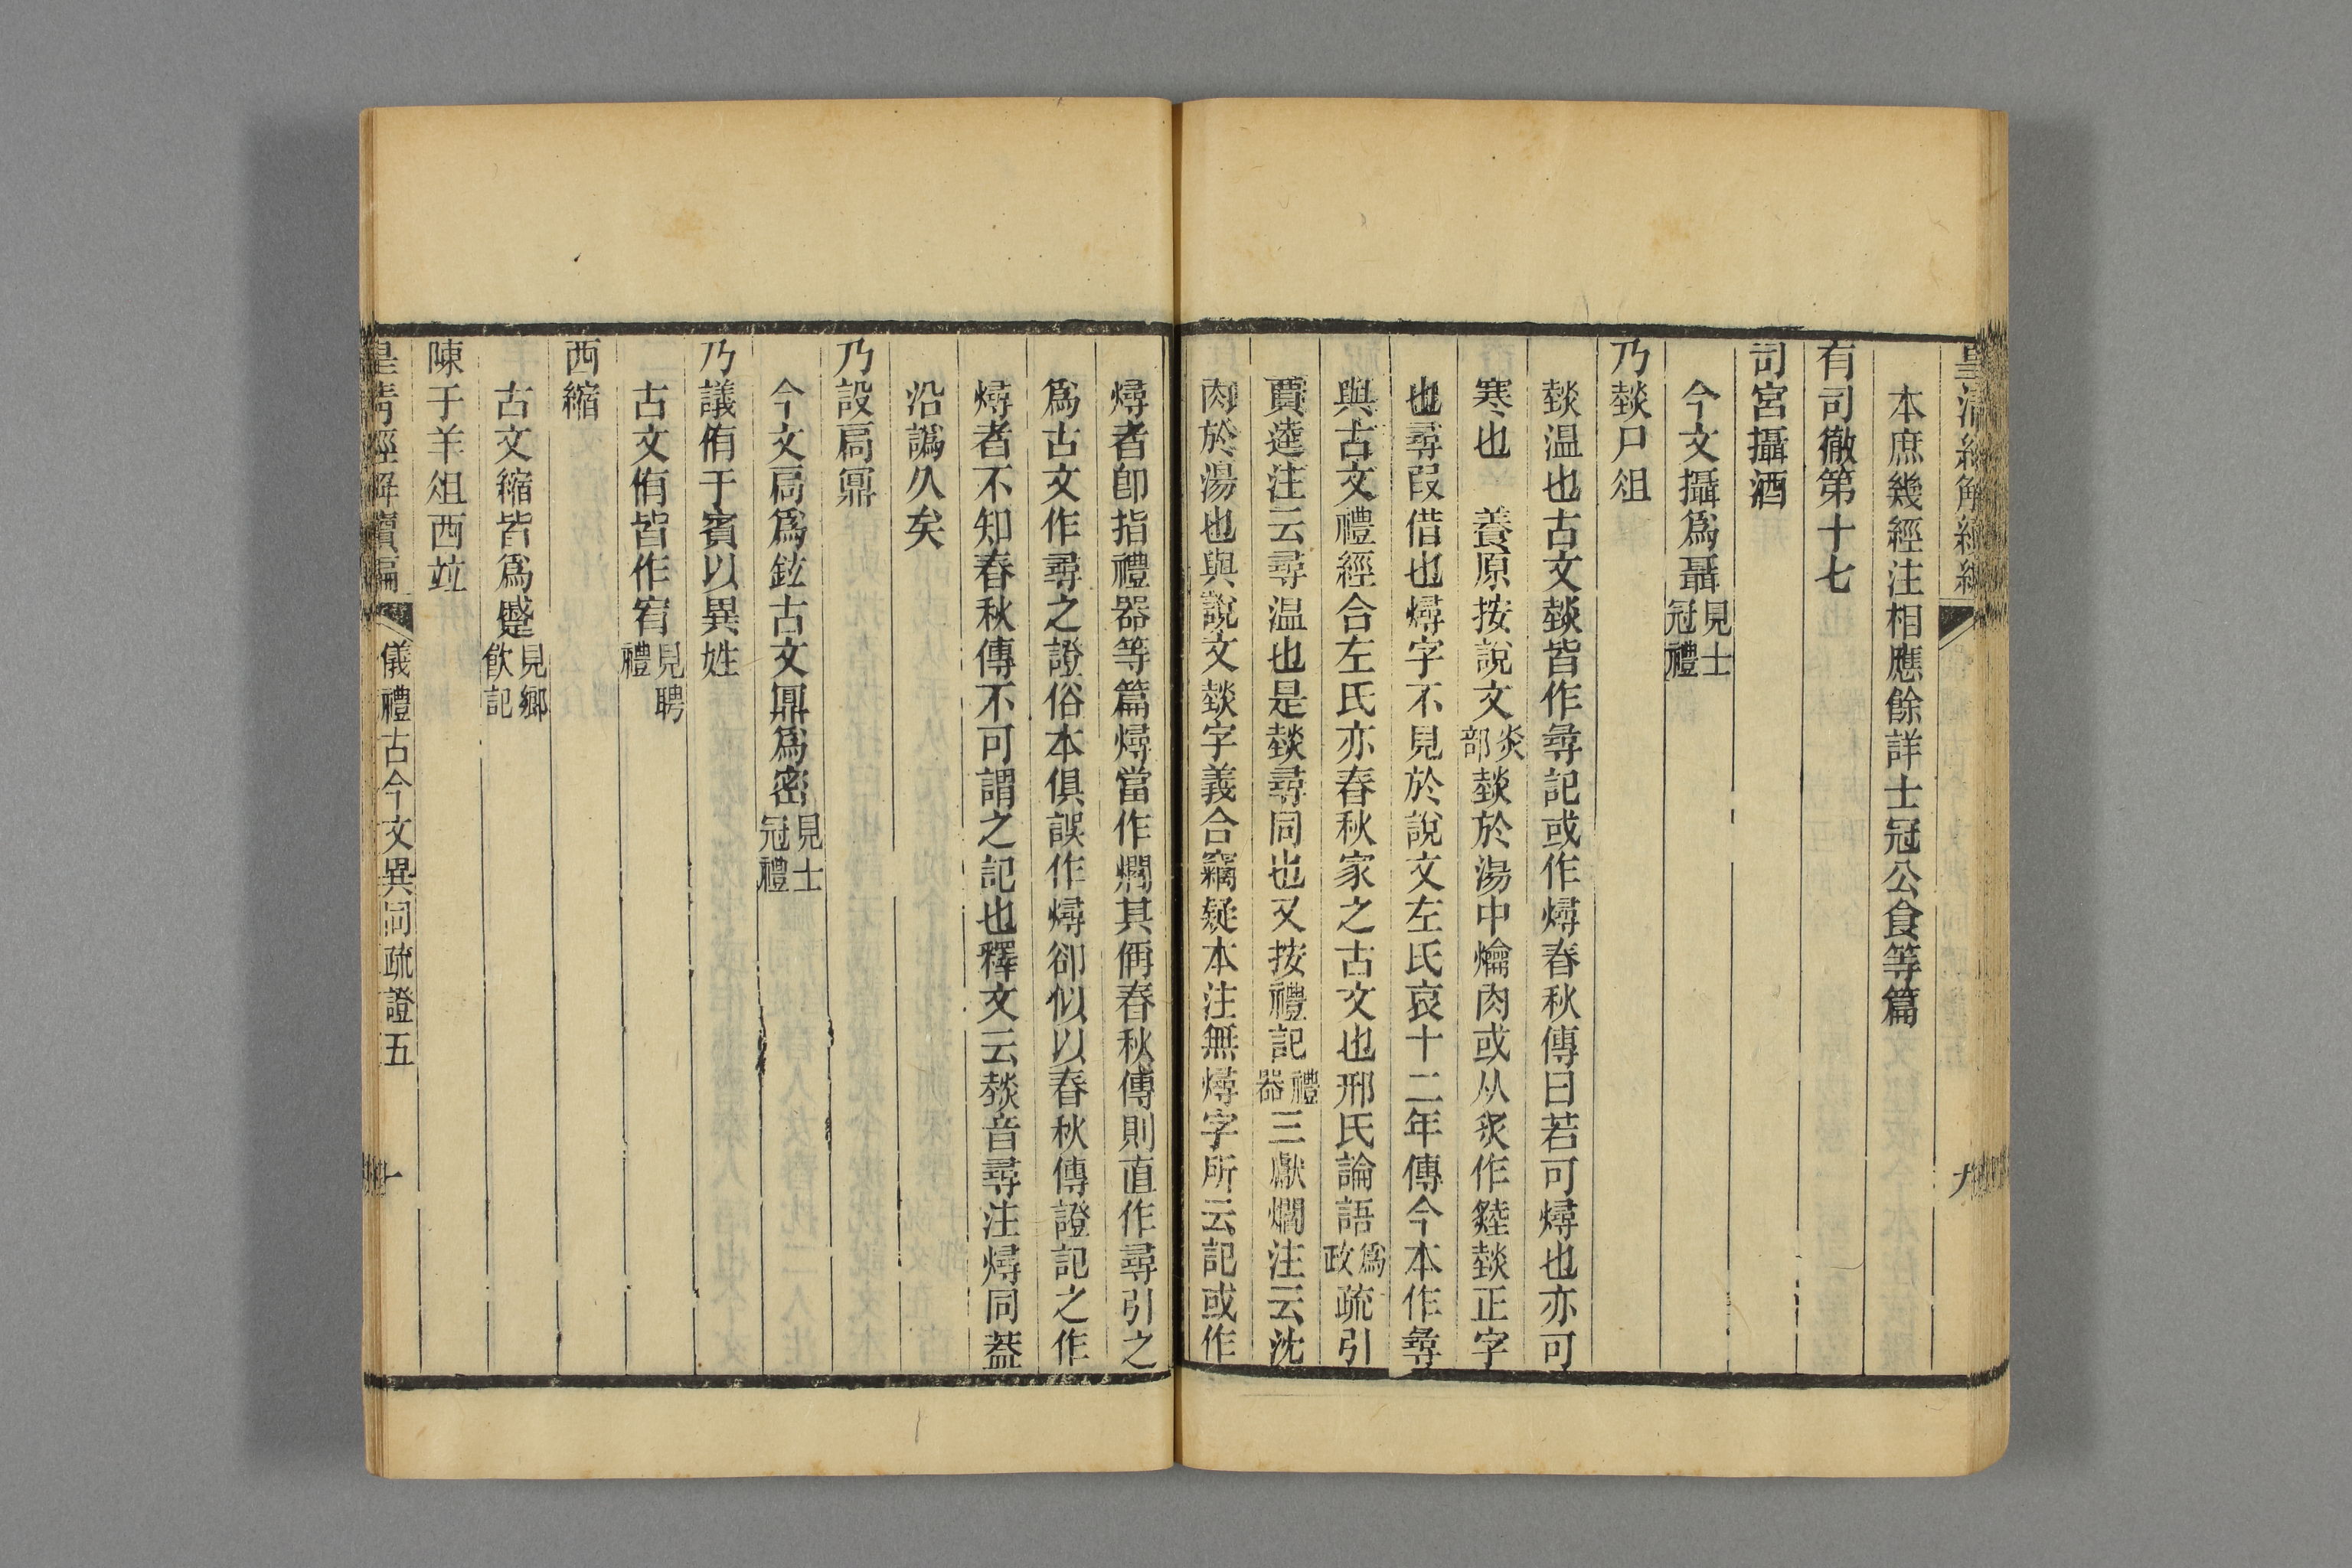 本庶幾經注相應餘詳士冠公食等篇
有司徹第十七
司宮攝酒
今文攝爲聶見士冠禮
乃燅尸俎
燅温也古文燅皆作㝷記或作燖春秋傳曰若可燖也亦可
寒也　養原按說文炎部燅於湯中爚肉或从炙作𤊽燅正字
也尋叚借也燖字不見於說文左氏哀十二年傳今本作㝷
與古文禮經合左氏亦春秋家之古文也邢氏論語爲政疏引
賈逵注云尋温也是燅尋同也又按禮記禮器三獻爓注云沈
肉於湯也與說文燅字義合竊疑本注無燖字所云記或作
燖者卽指禮器等篇燖當作爓其偁春秋傳則直作尋引之
爲古文作尋之證俗本俱誤作燖卻似以春秋傳證記之作
燖者不知春秋傳不可謂之記也釋文云燅音尋注燖同葢
沿譌久矣
乃設扃鼏
今文扃爲鉉古文鼏爲密見士冠禮
乃議侑于賓以異姓
古文侑皆作宥見聘禮
西縮
古文縮皆爲蹙見鄉飮記
陳于羊俎西竝
皇清經解續編
儀禮古今文異同疏證五